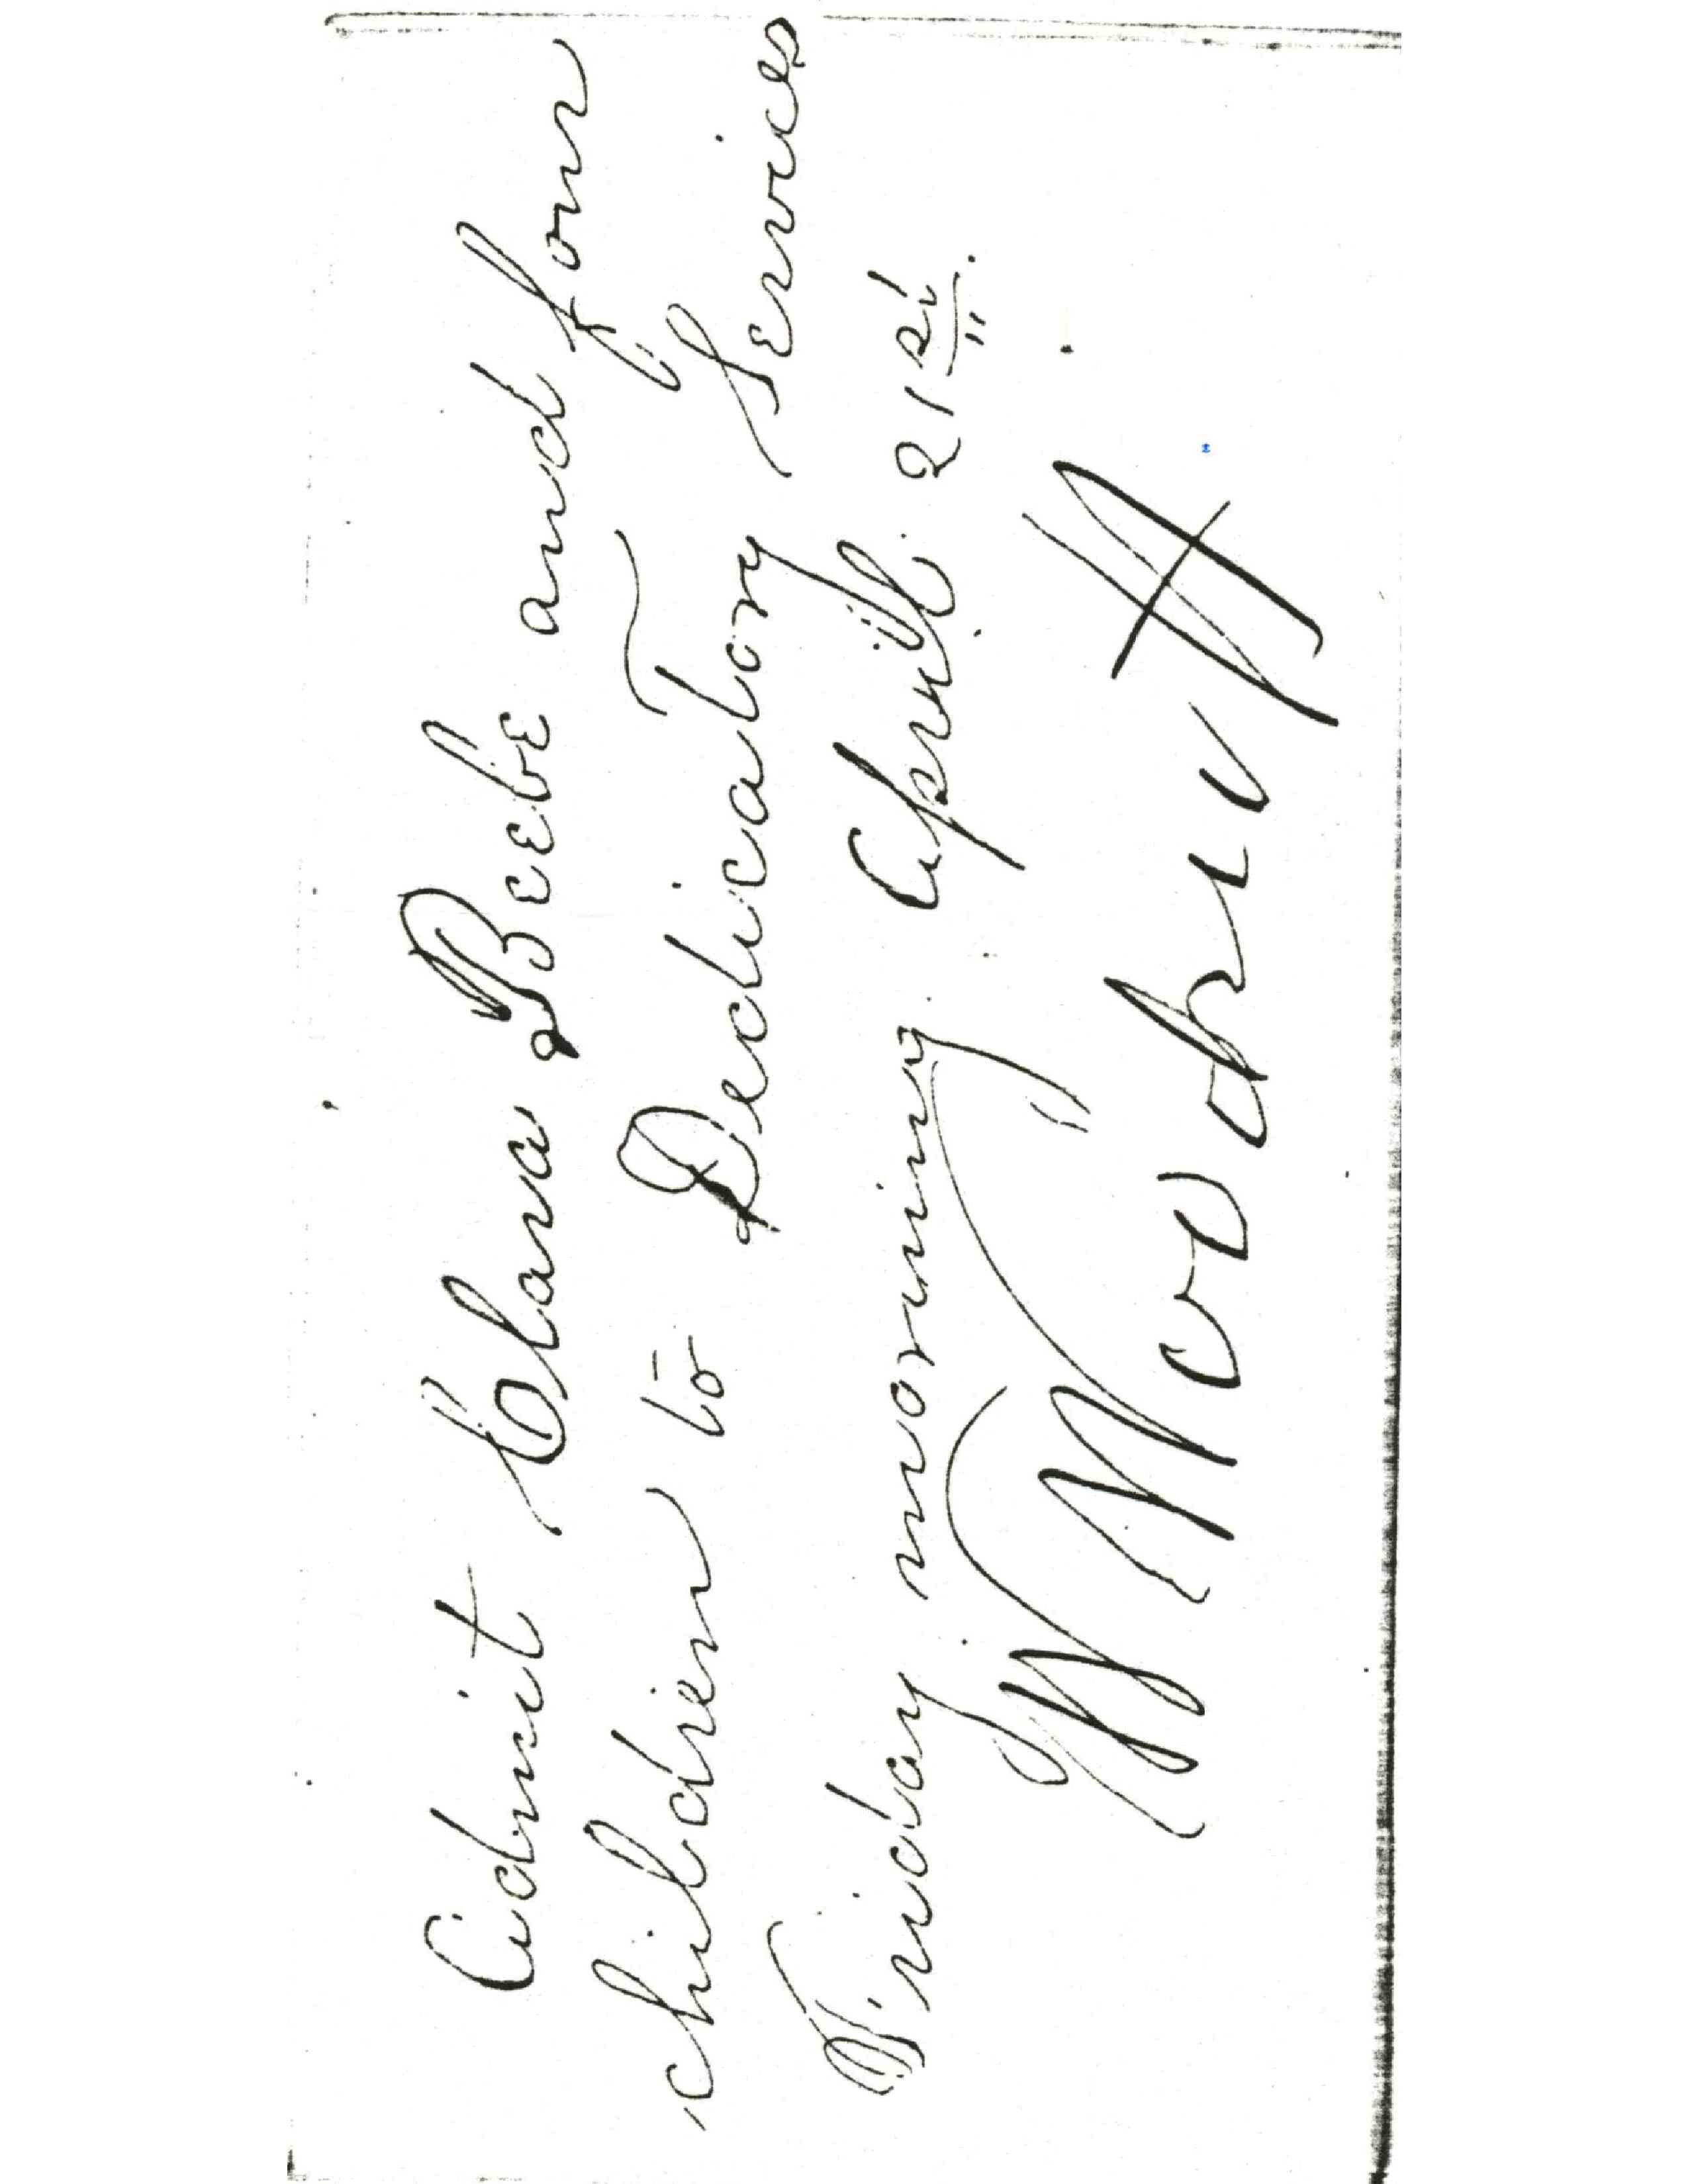 Admit Clara Beebe and four
children to Dedicatory Services
Friday morning April 21st.
W Woodruff